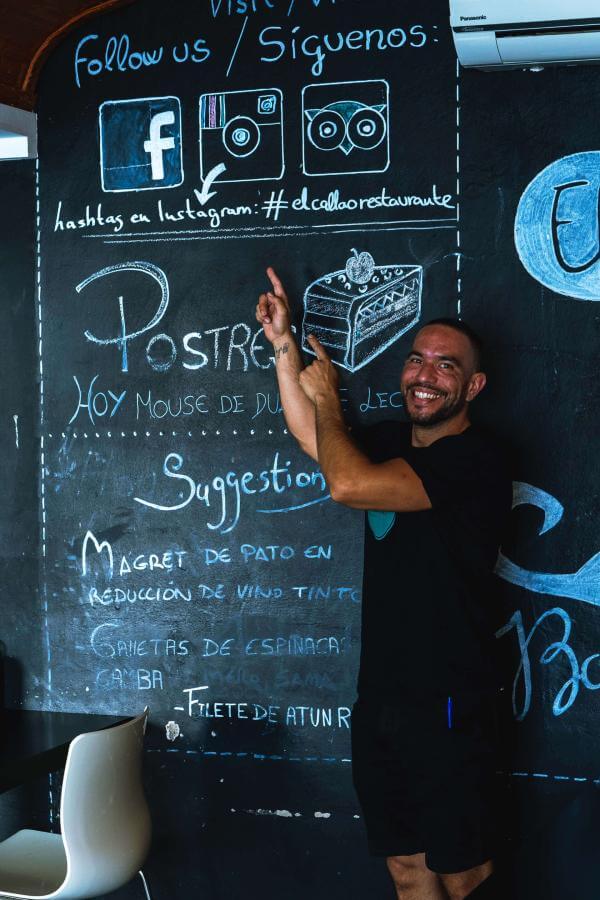 Panasonic
Follow us / Síguenos:
f
hashtag en Instagram: # elcallaorestaurante
POSTRE
HOY MOUSE DE DU E LEC
Suggestion
MAGRET DE PATO EN
REDUCCIÓN DE VINO TINTO
GALLETAS DE ESPINACAS
GAMBA
-FILETE DE ATUN R